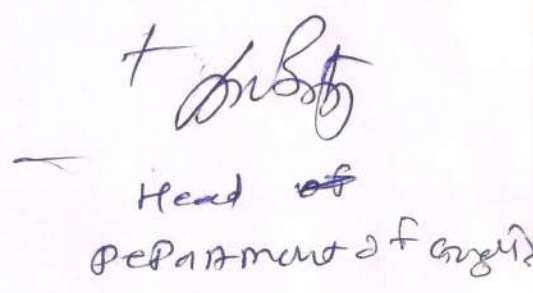 Head of
Department of English